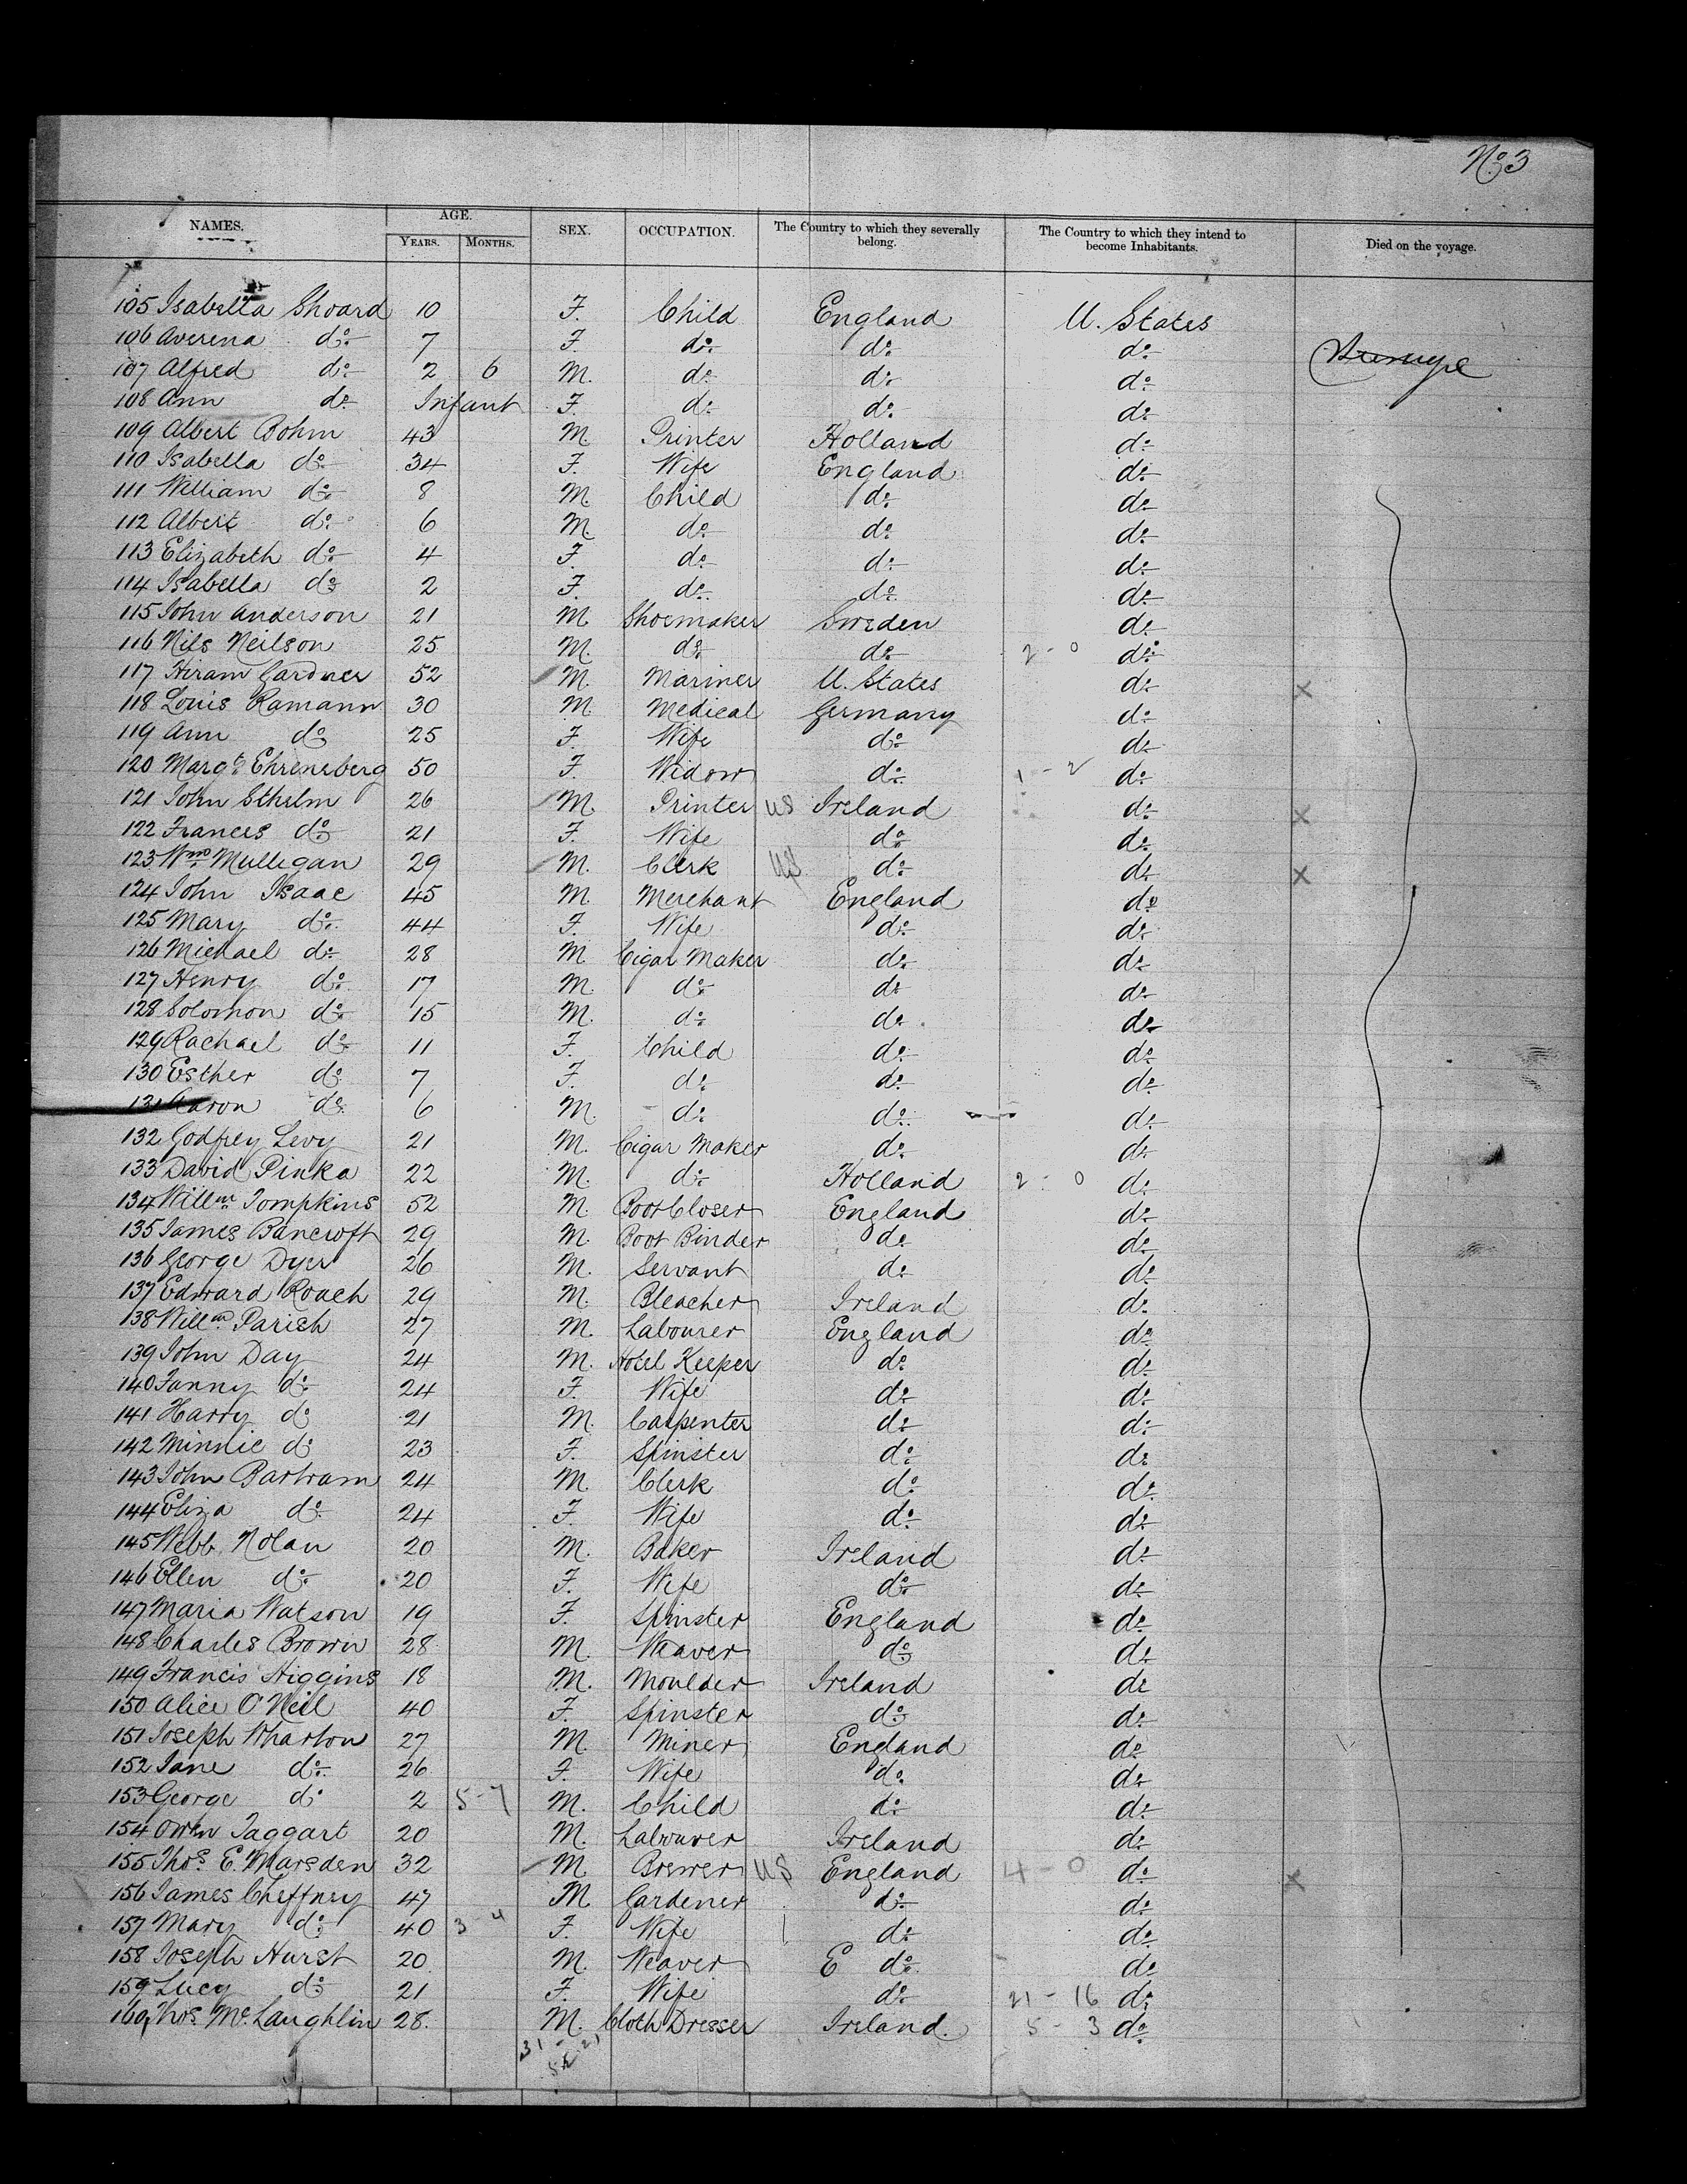 No. 3
NAMES. AGE. SEX. OCCUPATION. The Country to which they severally belong. The Country to which they intend to become Inhabitants. Died on the voyage.
YEARS. MONTHS.
105 Isabella Shoard 10 F. Child England U. States
106 Averena do 7 F. do do do
107 Alfred do 2 6 M. do do do
108 Ann do Infant F. do do do
109 Albert Bohm 43 M. Printer Holland do
110 Isabella do 34 F. Wife England do
111 William do 8 M. Child do do
112 Albert do 6 M. do do do
113 Elizabeth do 4 F. do do do
114 Isabella do 2 F. do do do
115 John Anderson 21 M. Shoemaker Sweden do
116 Nils Neilson 25 M. do do 2 - 0 do
117 Hiram Gardner 52 M. Mariner U. States do X
118 Louis Ramann 30 M. Medical Germany do
119 Ann do 25 F. Wife do do
120 Margt. Ehrensberg 50 F. Widow do 1 - 2 do
121 John Sthelm 26 M. Printer US Ireland do X
122 Frances do 21 F. Wife do do
123 Wm. Mulligan 29 M. Clerk US do do X
124 John Isaac 45 M. Merchant England do
125 Mary do 44 F. Wife do do
126 Michael do 28 M. Cigar Maker do do
127 Henry do 17 M. do do do
128 Solomon do 15 M. do do do
129 Rachael do 11 F. Child do do
130 Esther do 7 F. do do do
131 Aaron do 6 M. do do do
132 Godfrey Levy 21 M. Cigar Maker do do
133 David Pinka 22 M. do Holland 2 - 0 do
134 Willm. Tompkins 52 M. Boot Closer England do
135 James Bancroft 29 M. Boot Binder do do
136 George Dyer 26 M. Servant do do
137 Edward Roach 29 M. Bleacher Ireland do
138 Willm. Parish 27 M. Labourer England do
139 John Day 24 M. Hotel Keeper do do
140 Fanny do 24 F. Wife do do
141 Harry do 21 M. Carpenter do do
142 Minnie do 23 F. Spinster do do
143 John Bartram 24 M. Clerk do do
144 Eliza do 24 F. Wife do do
145 Webb Nolan 20 M. Baker Ireland do
146 Ellen do 20 F. Wife do do
147 Maria Watson 19 F. Spinster England do
148 Charles Brown 28 M. Weaver do do
149 Francis Higgins 18 M. Moulder Ireland do
150 Alice O'Neil 40 F. Spinster do do
151 Joseph Wharton 27 M. Miner England do
152 Jane do 26 F. Wife do do
153 George do 2 5 - 7 M. Child do do
154 Owen Taggart 20 M. Labourer Ireland do
155 Thos. E. Marsden 32 M. Brewer US England 4 - 0 do X
156 James Cheffney 47 M Gardener do do
157 Mary do 40 3 - 4 F. Wife do do
158 Joseph Hurst 20 M. Weaver E do do
159 Lucy do 21 F. Wife do 21 - 16 do
160 Thos. McLaughlin 28. M. Cloth Dresser Ireland. 5 - 3 do
31 - 21
52